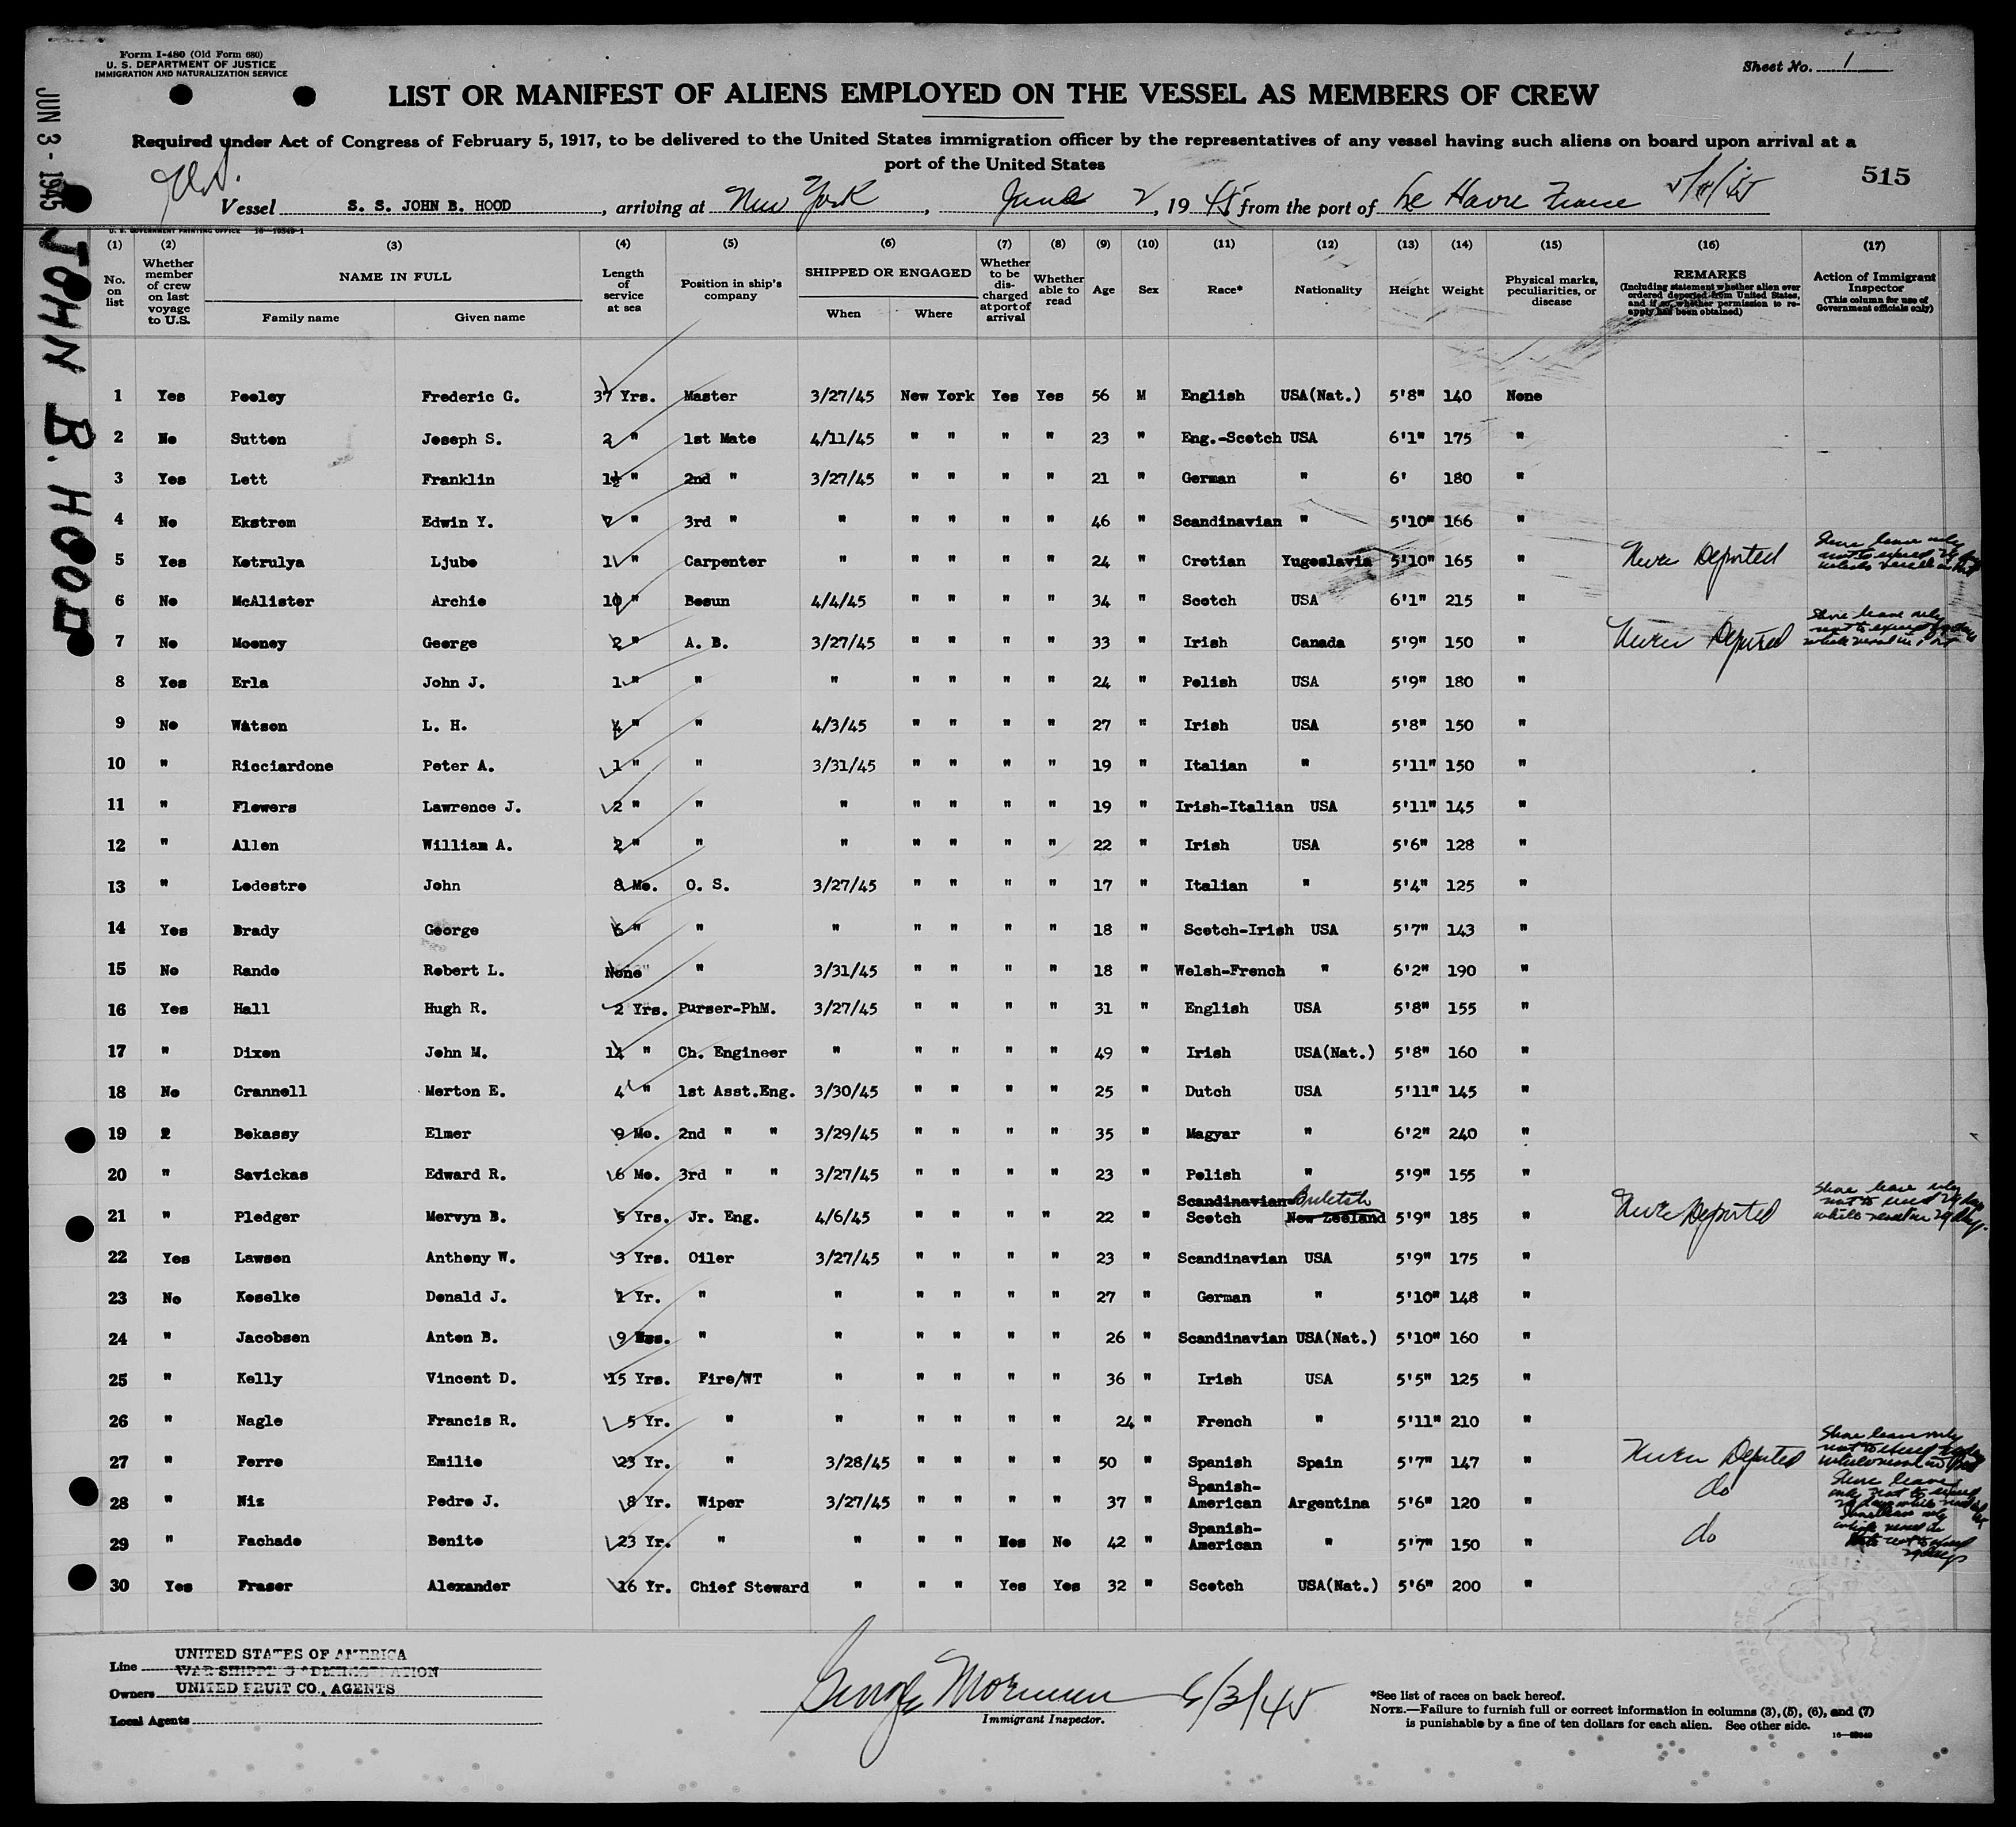 Form I-480 (Old Form 680)
U. S. DEPARTMENT OF JUSTICE
IMMIGRATION AND NATURALIZATION SERVICE
Sheet No. 1
JUN 3 - 1945
JOHN B. HOOD
LIST OR MANIFEST OF ALIENS EMPLOYED ON THE VESSEL AS MEMBERS OF CREW
Required under Act of Congress of February 5, 1917, to be delivered to the United States immigration officer by the representatives of any vessel having such aliens on board upon arrival at a
port of the United States
515
Vessel S. S. JOHN B. HOOD, arriving at New York, June 2, 1945 from the port of Le Havre France
U. S. GOVERNMENT PRINTING OFFICE 16-10349-1
(1) (2) (3) (4) (5) (6) (7) (8) (9) (10) (11) (12) (13) (14) (15) (16) (17)
No. on list
Whether member of crew on last voyage to U.S.
NAME IN FULL
Family name Given name
Length of service at sea
Position in ship's company
SHIPPED OR ENGAGED
When Where
Whether to be discharged at port of arrival
Whether able to read
Age
Sex
Race*
Nationality
Height
Weight
Physical marks, peculiarities, or disease
REMARKS
(Including statement whether alien ever ordered deported from United States, and if so, whether permission to reapply has been obtained)
Action of Immigrant Inspector
(This column for use of Government officials only)
1 Yes Peeley Frederic G. 37 Yrs. Master 3/27/45 New York Yes Yes 56 M English USA(Nat.) 5'8" 140 None
2 No Sutton Joseph S. 2 " 1st Mate 4/11/45 " " " " 23 " Eng.-Scotch USA 6'1" 175 "
3 Yes Lett Franklin 1½ " 2nd " 3/27/45 " " " " 21 " German " 6' 180 "
4 No Ekstrom Edwin Y. 7 " 3rd " " " " " " 46 " Scandinavian " 5'10" 166 "
5 Yes Kotrulya Ljubo 1 " Carpenter " " " " " 24 " Crotian Yugoslavia 5'10" 165 " Never Deported
6 No McAlister Archie 10 " Bosun 4/4/45 " " " " 34 " Scotch USA 6'1" 215 "
7 No Mooney George 2 " A. B. 3/27/45 " " " " 33 " Irish Canada 5'9" 150 " Never Deported
8 Yes Erla John J. 1 " " " " " " " 24 " Polish USA 5'9" 180 "
9 No Watson L. H. 4 " " 4/3/45 " " " " 27 " Irish USA 5'8" 150 "
10 " Ricciardone Peter A. 1 " " 3/31/45 " " " " 19 " Italian " 5'11" 150 "
11 " Flowers Lawrence J. 2 " " " " " " " 19 " Irish-Italian USA 5'11" 145 "
12 " Allen William A. 2 " " " " " " " 22 " Irish USA 5'6" 128 "
13 " Lodestro John 8 Mo. O. S. 3/27/45 " " " " 17 " Italian " 5'4" 125 "
14 Yes Brady George 6 " " " " " " " 18 " Scotch-Irish USA 5'7" 143 "
15 No Rando Robert L. None " 3/31/45 " " " " 18 " Welsh-French " 6'2" 190 "
16 Yes Hall Hugh R. 2 Yrs. Purser-PhM. 3/27/45 " " " " 31 " English USA 5'8" 155 "
17 " Dixon John M. 14 " Ch. Engineer " " " " " 49 " Irish USA(Nat.) 5'8" 160 "
18 No Crannell Merton E. 4 " 1st Asst.Eng. 3/30/45 " " " " 25 " Dutch USA 5'11" 145 "
19 " Bekassy Elmer 9 Mo. 2nd " " 3/29/45 " " " " 35 " Magyar " 6'2" 240 "
20 " Savickas Edward R. 6 Mo. 3rd " " 3/27/45 " " " " 23 " Polish " 5'9" 155 "
21 " Pledger Mervyn B. 5 Yrs. Jr. Eng. 4/6/45 " " " " 22 " Scandinavian-Scotch New Zeeland British 5'9" 185 " Never Deported
22 Yes Lawson Anthony W. 3 Yrs. Oiler 3/27/45 " " " " 23 " Scandinavian USA 5'9" 175 "
23 No Koselke Donald J. 1 Yr. " " " " " " 27 " German " 5'10" 148 "
24 " Jacobsen Anton B. 9 Mos. " " " " " " 26 " Scandinavian USA(Nat.) 5'10" 160 "
25 " Kelly Vincent D. 15 Yrs. Fire/WT " " " " " 36 " Irish USA 5'5" 125 "
26 " Nagle Francis R. 5 Yr. " " " " " " 24 " French " 5'11" 210 "
27 " Ferro Emilio 23 Yr. " 3/28/45 " " " " 50 " Spanish Spain 5'7" 147 " Never Deported
28 " Niz Pedro J. 8 Yr. Wiper 3/27/45 " " " " 37 " Spanish-American Argentina 5'6" 120 " do
29 " Fachado Benito 23 Yr. " " " " Yes No 42 " Spanish-American " 5'7" 150 " do
30 Yes Fraser Alexander 16 Yr. Chief Steward " " " Yes Yes 32 " Scotch USA(Nat.) 5'6" 200 "
Line UNITED STATES OF AMERICA
WAR SHIPPING ADMINISTRATION
Owners UNITED FRUIT CO., AGENTS
Local Agents
6/3/45
Immigrant Inspector.
*See list of races on back hereof.
NOTE.—Failure to furnish full or correct information in columns (3), (5), (6), and (7)
is punishable by a fine of ten dollars for each alien. See other side.